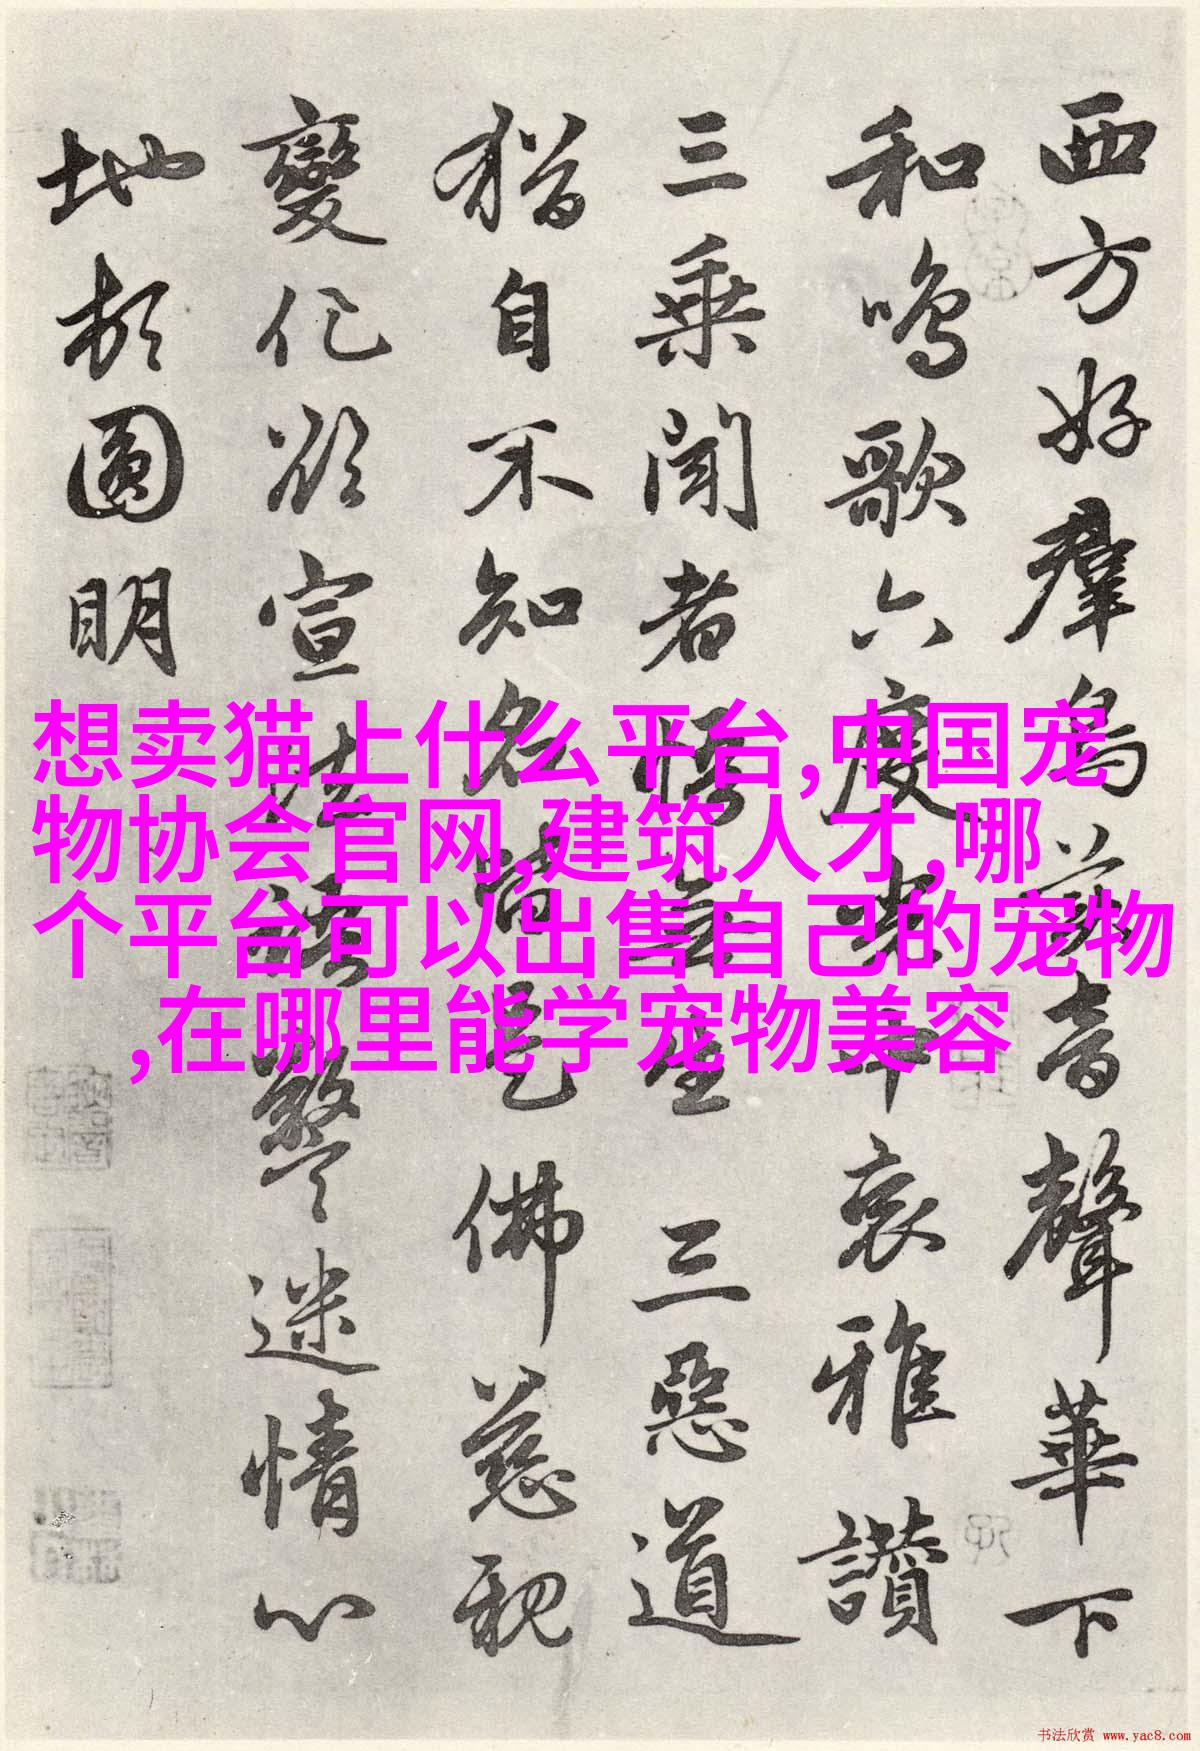 西方好羣鳥美音聲華下
和鳴歌六度光中哀雅讚
三乗聞者悟無生 三惡道
猶自不知名皆是佛慈親
變化欲宣法語警迷情心
地頓圓明
想卖猫上什么平台,中国宠
物协会官网,建筑人才,哪
个平台可以出售自己的宠物
,在哪里能学宠物美容
书法欣赏 www.yac8.com